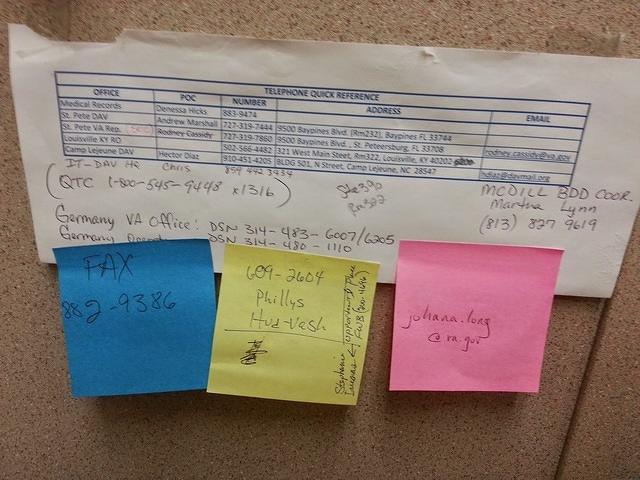 TELEPHONE QUICK REFERENCE
OFFICE POC NUMBER ADDRESS EMAIL
Medical Records Denessa Hicks 883-9474
St. Pete DAV Andrew Marshall 727-319-7444 9500 Baypines Blvd. (Rm232), Baypines, FL 33744
St. Pete VA Rep. Rodney Cassidy 727-319-7860 9500 Baypines Blvd., St. Petersburg, FL 33708 rodney.cassidy@va.gov
Louisville KY RO 502-566-4482 321 West Main Street, Rm322, Louisville, KY 40202
Camp Lejeune DAV Hector Diaz 910-451-4205 BLDG 501, N Street, Camp Lejeune, NC 28547 hdiaz@davmail.org
IT-DAV HQ Chris 859 442 3934
(QTC 1-800-545-9448 x1316)
Ste 390
Rm322
MCDILL BDD COOR.
Martha Lynn
(813) 827 9619
Germany VA Office: DSN 314-483-6007/6205
Germany DSN 314-480-1110
FAX
882-9386
609-2604
Phillys
Hud-Vash
Stephanie
johana.long
@va.gov